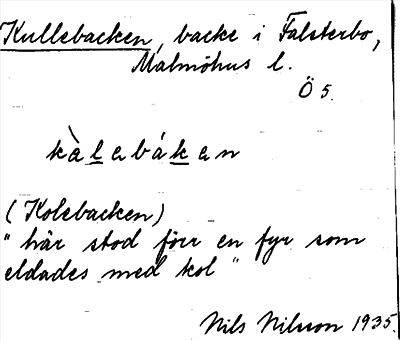 Kullebacken, backe i Falsterbo,
Malmöhus l.
Ö 5.
kàlebákan
(Kolebacken)
"här stod förr en fyr som
eldades med kol"
Nils Nilsson 1935.